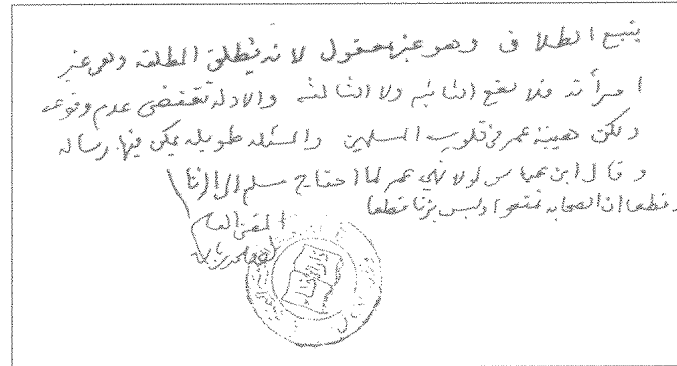 يتبع الطلاق وهو غير معقول لانه يطلق المطلقه وهي غير
امرأته فلا تقع الثانيه ولا الثالثه والادله تقتضى عدم وقوعه
ولكن هيبة عمر في قلوب المسلمين والمسئله طويله يمكن فيها رساله
وقال ابن عباس لولا نهي عمر لما احتاج مسلم الى الزنا
وقطعا ان الصحابه تمتعوا وليس بزنا قطعا
المفتى العام